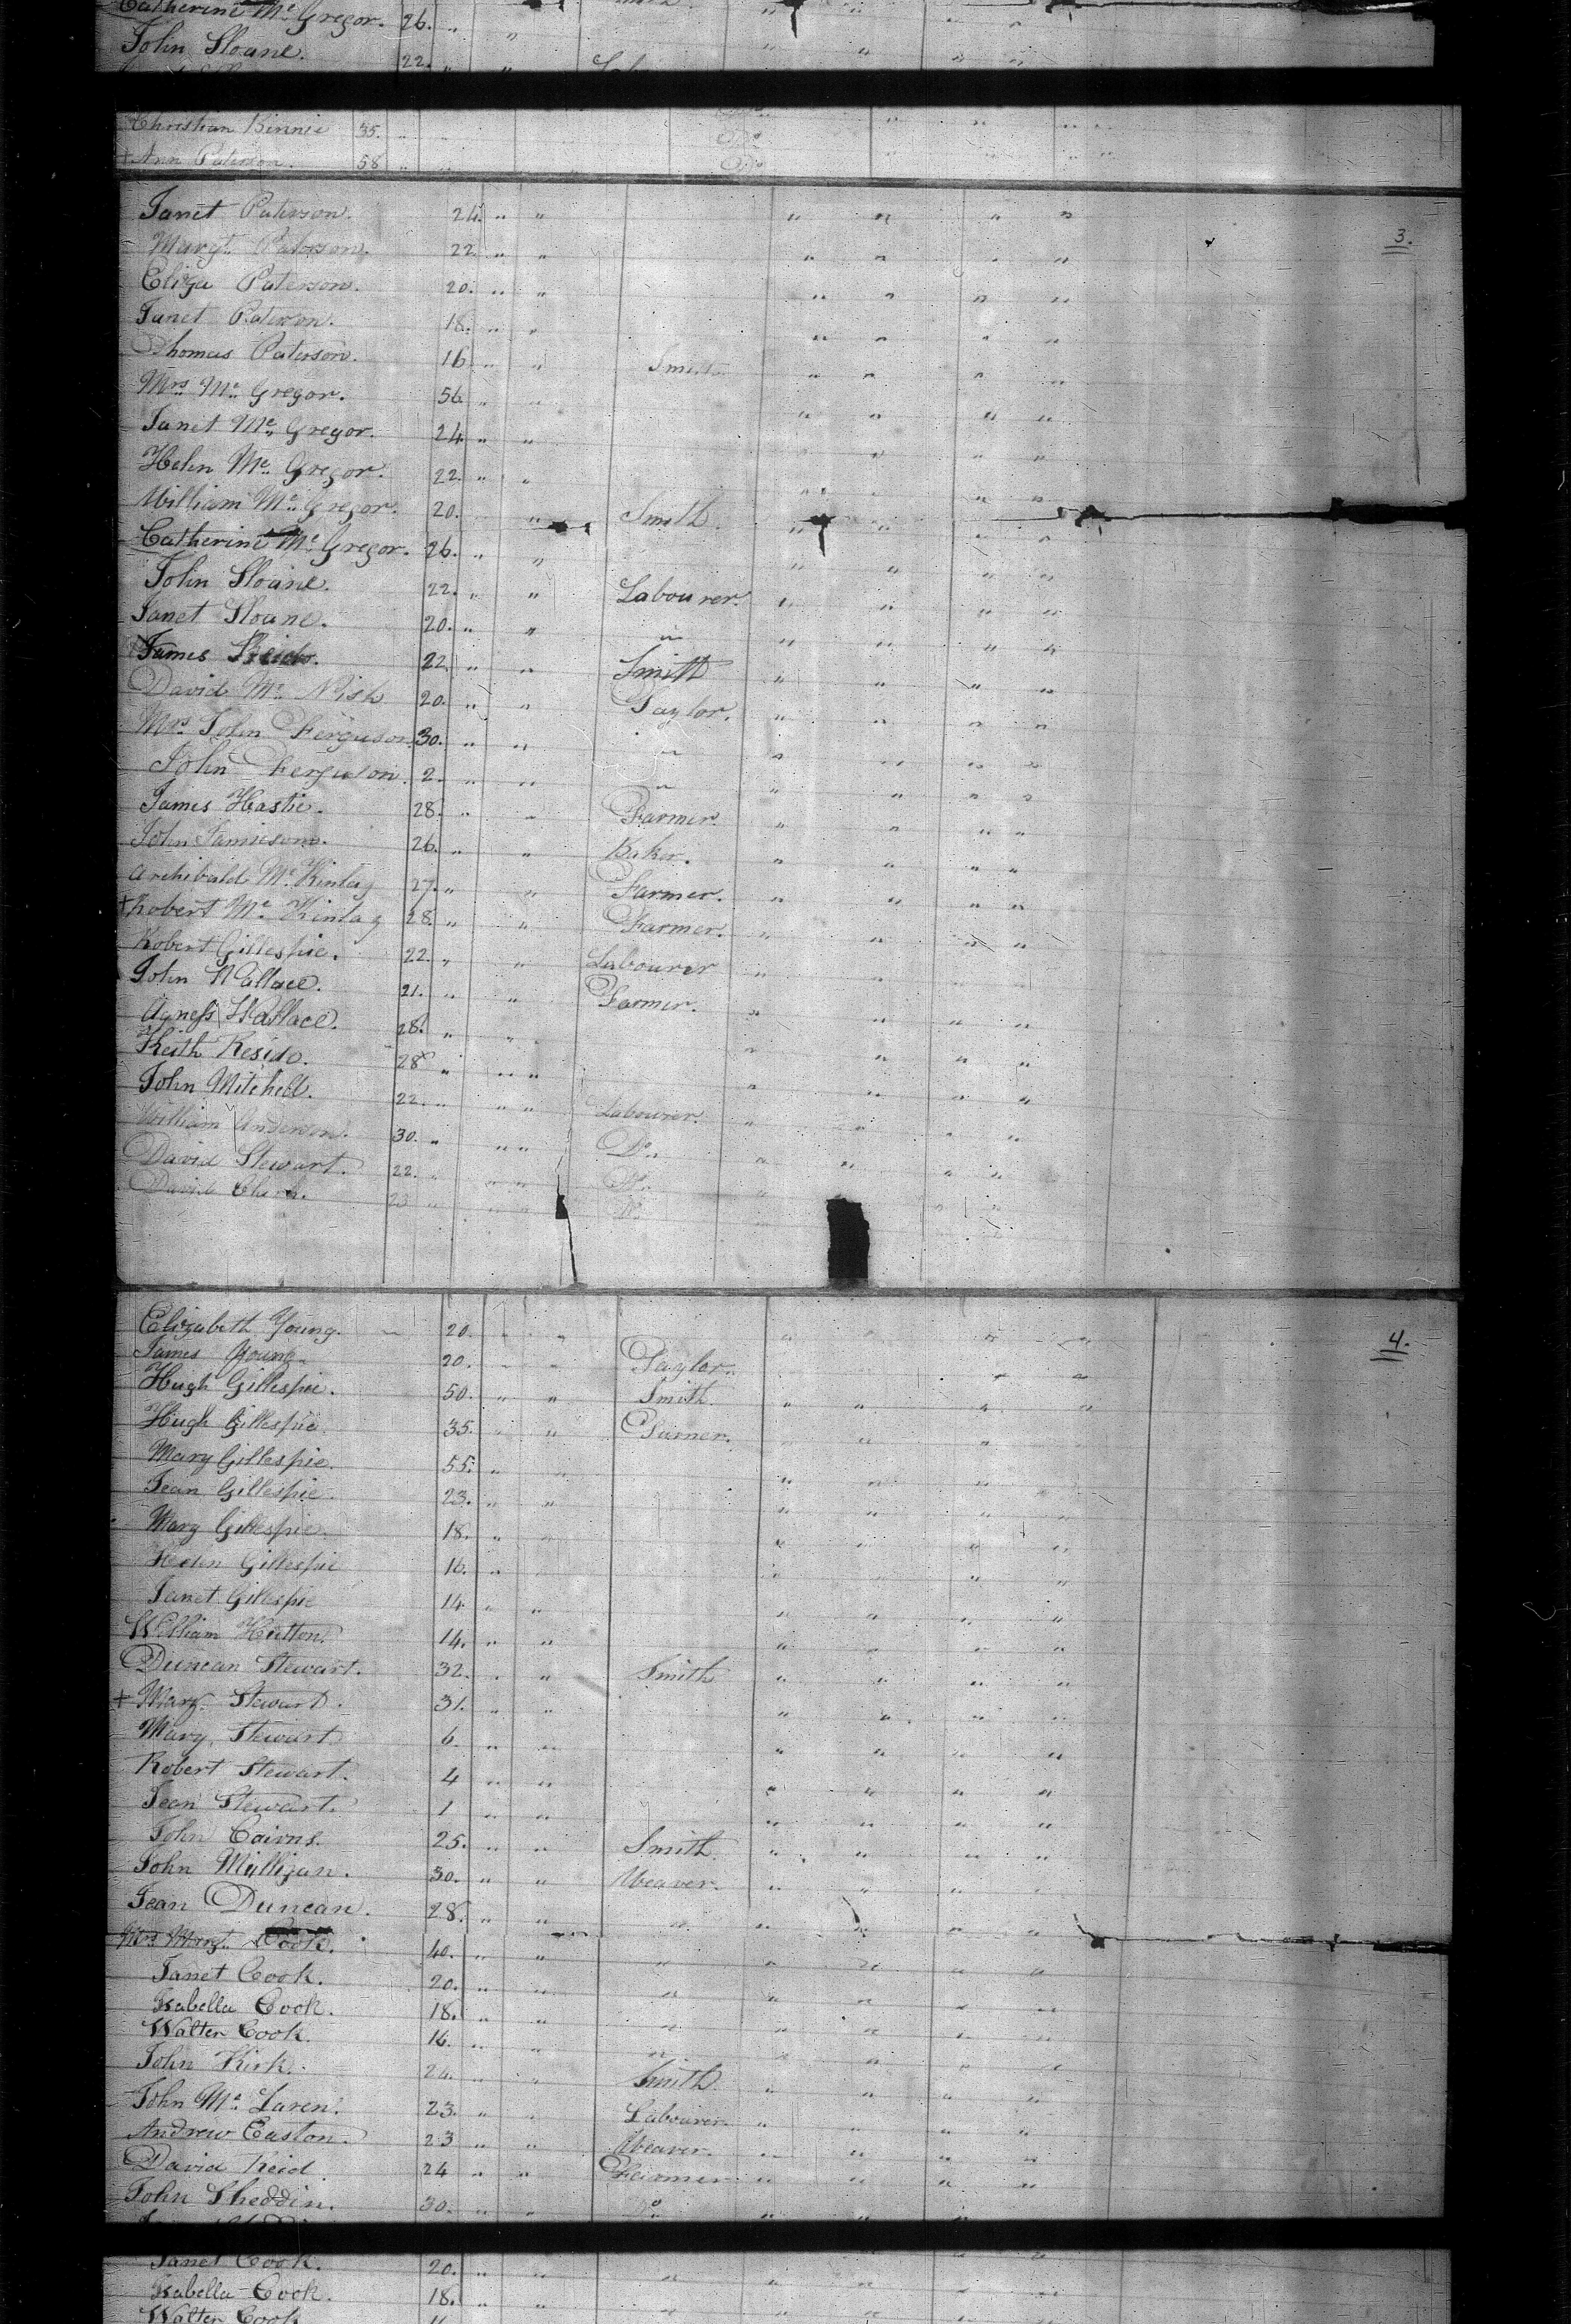 Catherine Mc Gregor. 26. " "
John Sloane. 22. " "
Christian Binnie 35. " Do
+ Ann Paterson. 58 " Do
Janet Paterson. 24. " " " " " "
3.
Margt. Paterson. 22. " " " " " "
Eliza Paterson. 20. " " " " " "
Janet Paterson. 18. " " " " " "
Thomas Paterson. 16 " " Smith " " " "
Mrs Mc Gregor. 56 " " " " " "
Janet Mc Gregor. 24 " " " " "
Helen Mc Gregor. 22. " " " " " "
William Mc Gregor. 20. " Smith. " " " "
Catherine Mc Gregor. 26. " " " " " "
John Sloane. 22. " " Labourer. " " " "
Janet Sloane. 20. " " " " " " "
James 22 " " Smith " " " "
David Mc Nish 20. " " Taylor. " " " "
Mrs John Ferguson 30. " " " " " " "
John Ferguson. 2. " " " " " " "
James Hastie. 28. " " Farmer. " " " "
John Jamieson. 26. " " Baker. " " " "
Archibald Mc Kinlay 27. " " Farmer. " " " "
+ Robert Mc Kinlay 28. " " Farmer. " " " "
Robert Gillespie. 22. " " Labourer " " " "
John Wallace. 21. " " Farmer. " " " "
Agness Wallace. 28. " " " " " "
Keith 28 " " " " " "
John Mitchell. 22. " " " Labourer. " " " "
William Anderson. 30. " " " Do " " " "
David Stewart. 22. " " " Do " " "
David Clark. 23 " " " Do
Elizabeth Young. 20. " " " " " "
4.
James Young. 20. " " Taylor. " "
Hugh Gillespie. 50. " " Smith. " " " "
Hugh Gillespie. 35. " " " " "
Mary Gillespie. 55. " " " " "
Jean Gillespie. 23. " " " " " "
Mary Gillespie. 18. " " " " " "
Helen Gillespie 16. " " " " "
Janet Gillespie 14 " " " " " "
William Hutton. 14. " " " " " "
Duncan Stewart. 32. " " Smith " " " "
+ Mary Stewart. 31. " " " " " "
Mary Stewart 6. " " " " " "
Robert Stewart. 4 " " " " " "
Jean Stewart. 1 " " " " " "
John Cairns. 25. " " Smith. " " " "
John Milligan. 30. " " Weaver. " " " "
Jean Duncan. 28. " " " " " " "
Mrs Margt. Cook. 40. " " " " " " "
Janet Cook. 20. " " " " " " "
Isabella Cook. 18. " " " " " " "
Walter Cook. 16. " " " " " " "
John Kirk. 24. " " Smith. " " " "
John Mc Laren. 23. " " Labourer. " " " "
Andrew Easton. 23 " " Weaver. " " " "
David Reid. 24 " " Farmer. " " " "
John Sheddin. 30. " " Do " " "
Janet Cook. 20. " " " " " " "
Isabella Cook. 18. " " " " " " "
Walter Cook